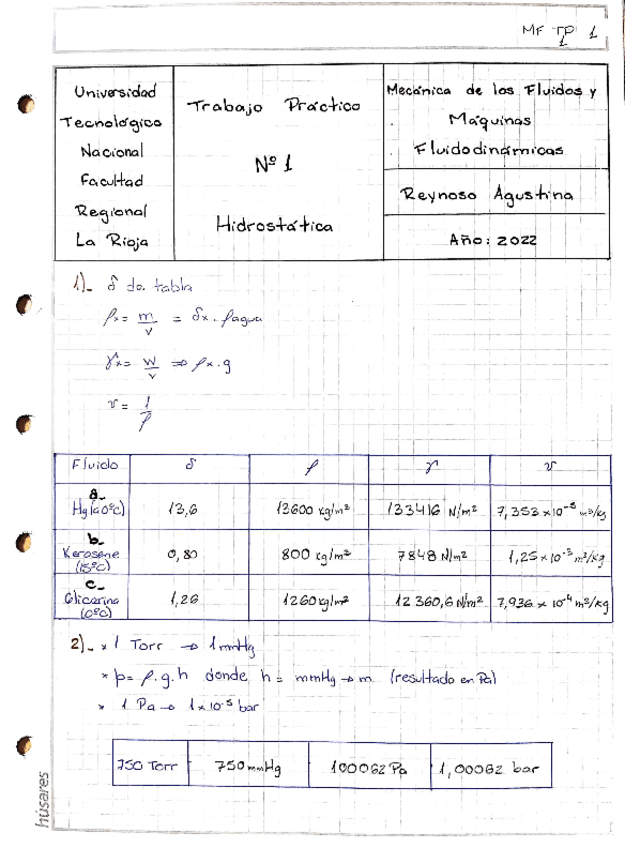 MF TP 1
1
Universidad
Tecnológica
Nacional
Facultad
Regional
La Rioja
Trabajo Práctico
Nº 1
Hidrostática
Mecánica de los Fluidos y
Máquinas
Fluidodinámicas
Reynoso Agustina
Año: 2022
1)_ δ de tabla
ρx = m/v = δx . ρagua
γx = W/v ⇒ ρx . g
v = 1/ρ
Fluido δ ρ γ v
a_
Hg(a 0ºC) 13,6 13600 kg/m² 133416 N/m² 7,353×10⁻⁵ m³/kg
b_
Kerosene
(15ºC) 0,80 800 kg/m² 7848 N/m² 1,25×10⁻³ m³/kg
c_
Glicerina
(0ºC) 1,26 1260 kg/m² 12 360,6 N/m² 7,936 × 10⁻⁴ m³/kg
2)_ * 1 Torr → 1 mmHg
* p = ρ.g.h donde h = mmHg → m (resultado en Pa)
* 1 Pa → 1×10⁻⁵ bar
750 Torr 750 mmHg 100062 Pa 1,00062 bar
húsares